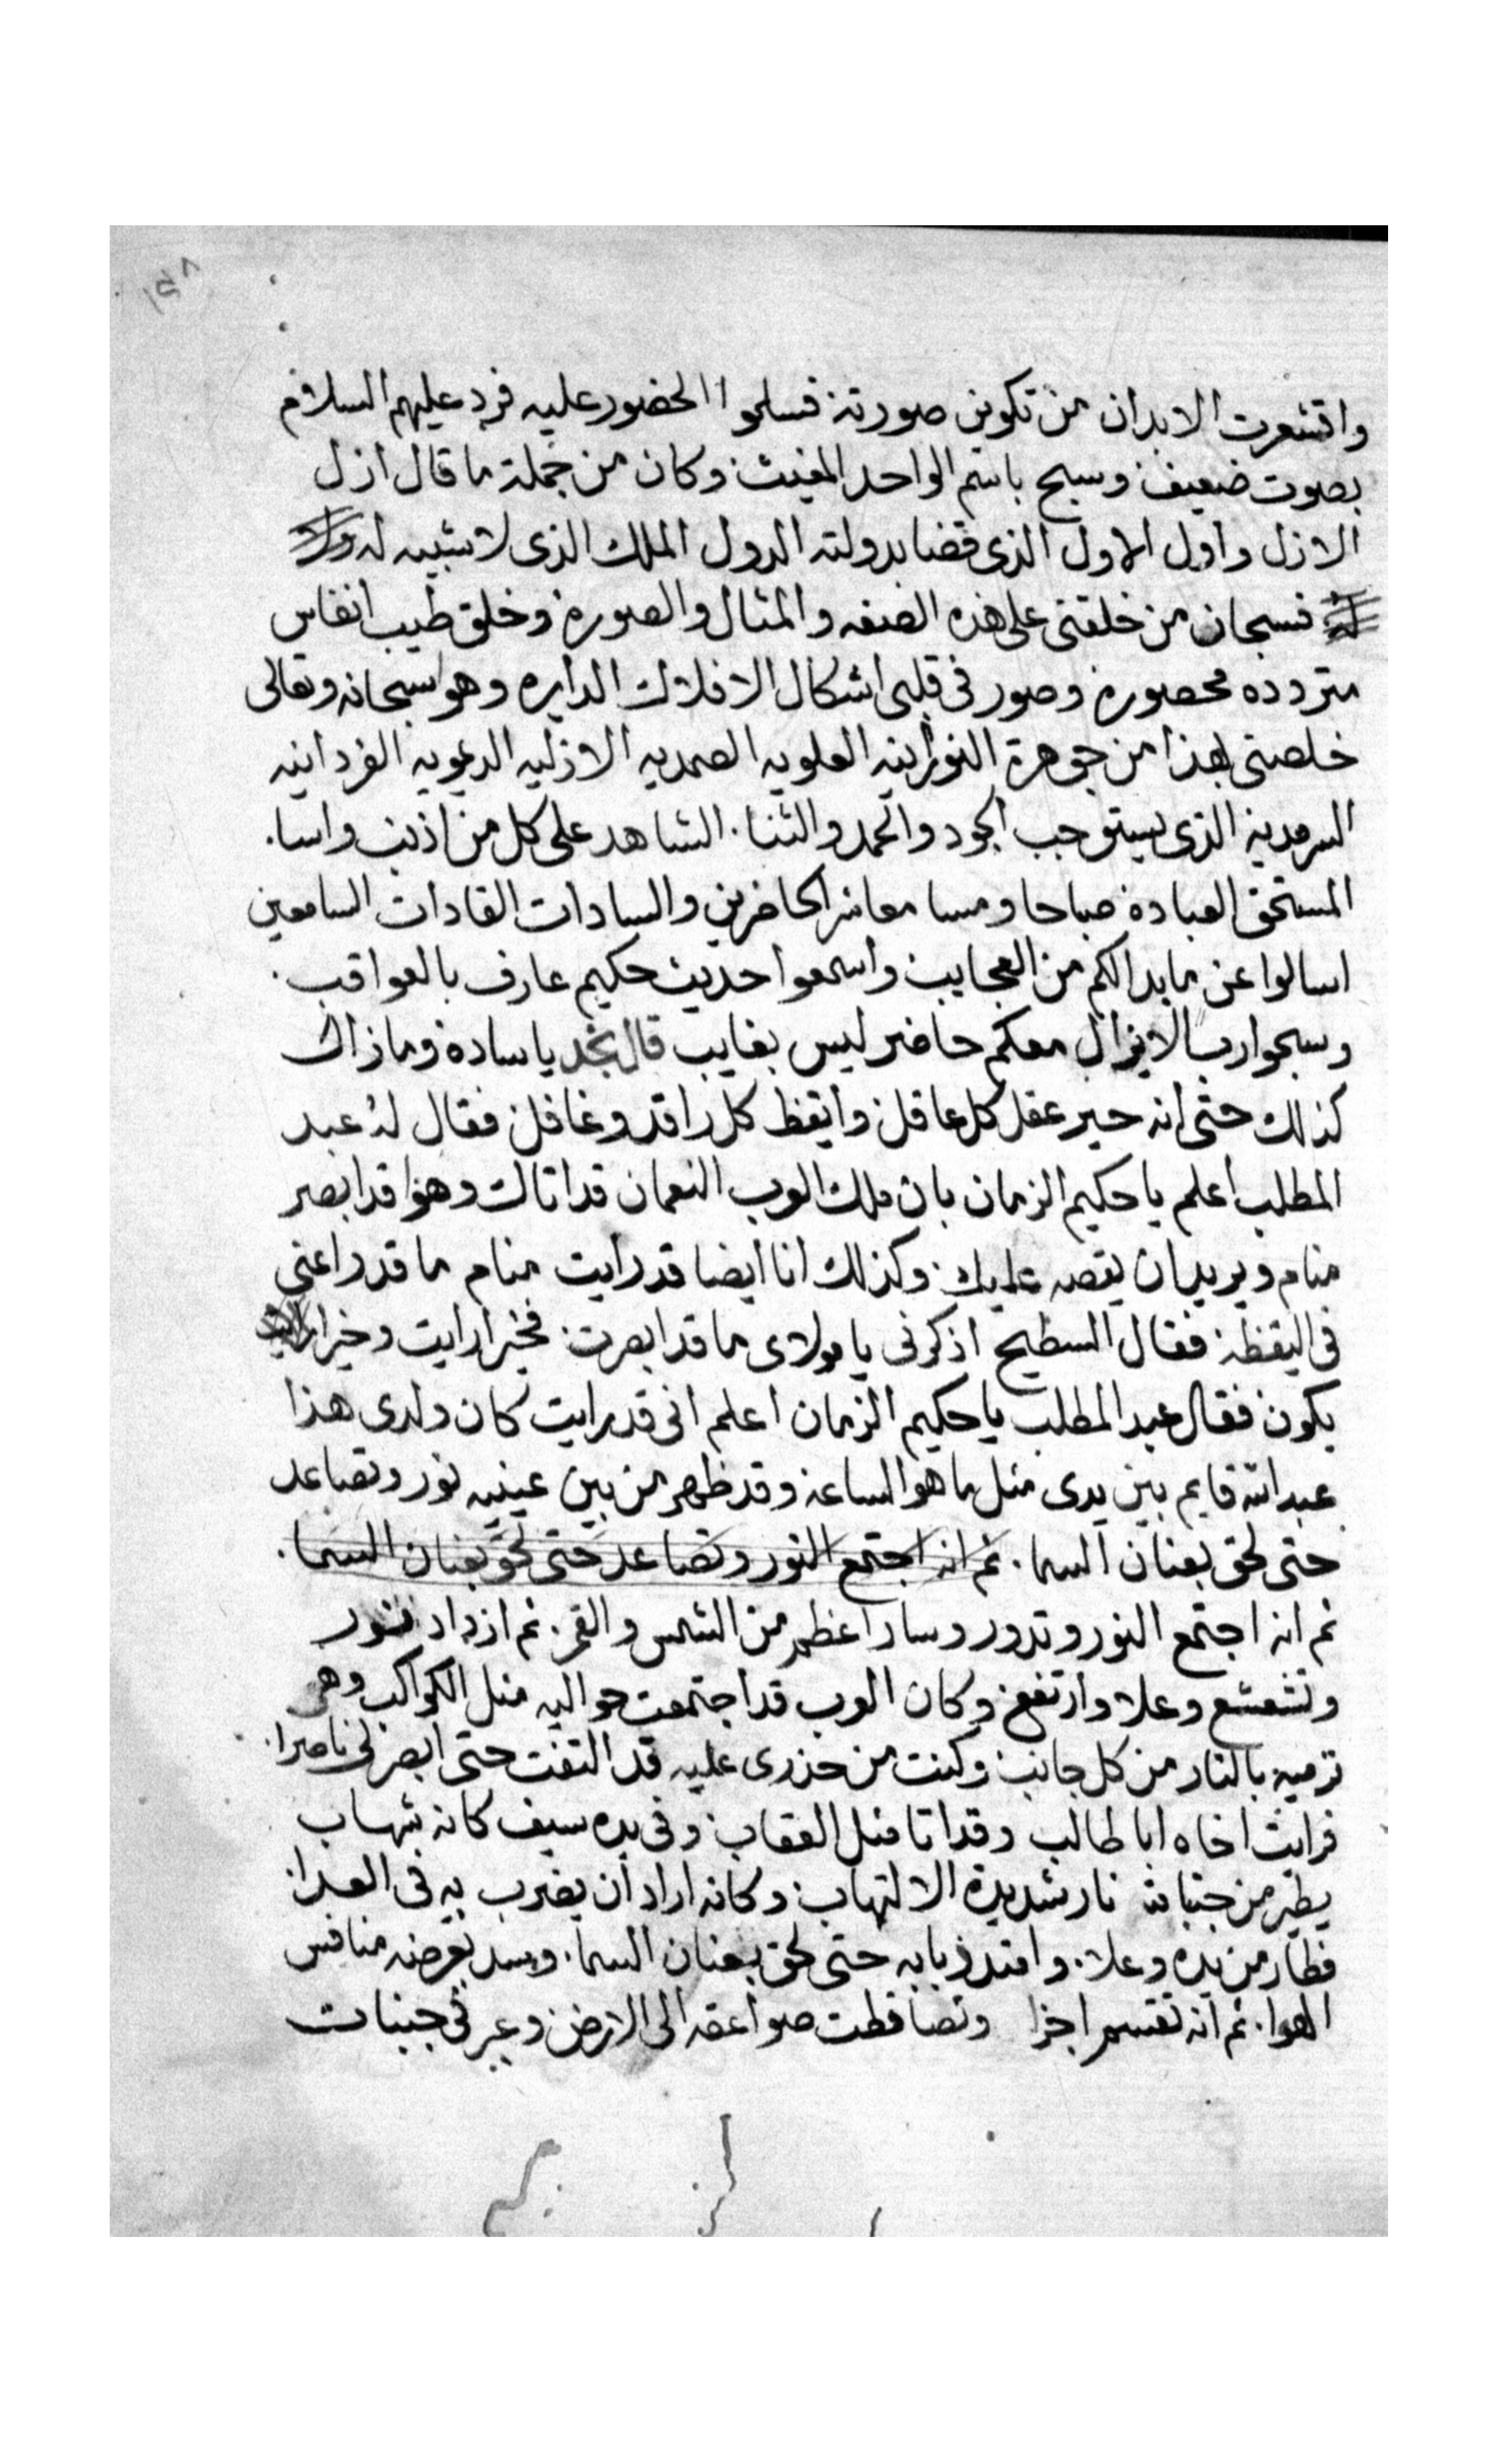 ١٥٨
واقشعرت الابدان من تكوين صورته فسلموا الحضور عليه فرد عليهم السلام
بصوت ضعيف وسبح باسم الواحد المغيث وكان من جملة ما قال ازل
الازل واول الاول الذى قضا بدولته الدول الملك الذى لا شبيه له ولا
له فسبحان من خلقنى على هذه الصفه والمثال والصورة وخلق طيب انفاس
متردده محصورة وصور فى قلبى اشكال الافلاك الدايره وهو سبحانه وتعالى
خلصنى بهذا من جوهرة النورانيه العلويه الصمديه الازليه الديمويه الفردانيه
السرمدية الذى يستوجب الجود والحمد والثنا. الشاهد على كل من اذنب واسا.
المستحق العبادة صباحا ومسا معاشر الحاضرين والسادات القادات السامعين
اسالوا عن ما بدا لكم من العجايب واسمعوا حديث حكيم عارف بالعواقب.
وسبحوا رب لا يزال معكم حاضر ليس بغايب قال نجد يا ساده وما زال
كذلك حتى انه حير عقل كل عاقل وايقظ كل راقد وغافل فقال له عبد
المطلب اعلم يا حكيم الزمان بان ملك العرب النعمان قد اتاك وهو قد ابصر
منام ويريد ان يقصه عليك وكذلك انا ايضا قد رايت منام ما قد راعنى
فى اليقظة فقال السطيح اذكر لى يا مولاى ما قد ابصرت فخير ارايت وخيرا
يكون فقال عبد المطلب يا حكيم الزمان اعلم انى قد رايت كان ولدى هذا
عبد الله قايم بين يدى مثل ما هو الساعة وقد ظهر من بين عينيه نور وتصاعد
حتى لحق بعنان السما. ثم انه اجتمع النور وتصاعد حتى لحق بعنان السما.
ثم انه اجتمع النور وتدور وسار اعظم من الشمس والقمر. ثم ازداد نور
وتشعشع وعلا وارتفع وكان العرب قد اجتمعت حواليه مثل الكواكب وهى
ترميه بالنار من كل جانب وكنت من حذرى عليه قد التفت حتى ابصر لى ناصرا.
فرايت اخاه ابا طالب وقد اتا مثل العقاب وفى يده سيف كانه شهاب
يطير من جنباته نار شديدة الالتهاب وكانه اراد ان يضرب به فى العدا.
فطار من يده وعلا. وامتد ذبابه حتى لحق بعنان السما. وسد بعرضه منافس
الهوا. ثم انه تقسم اجزا وتصاقطت صواعقه الى الارض وعبر فى جنبات